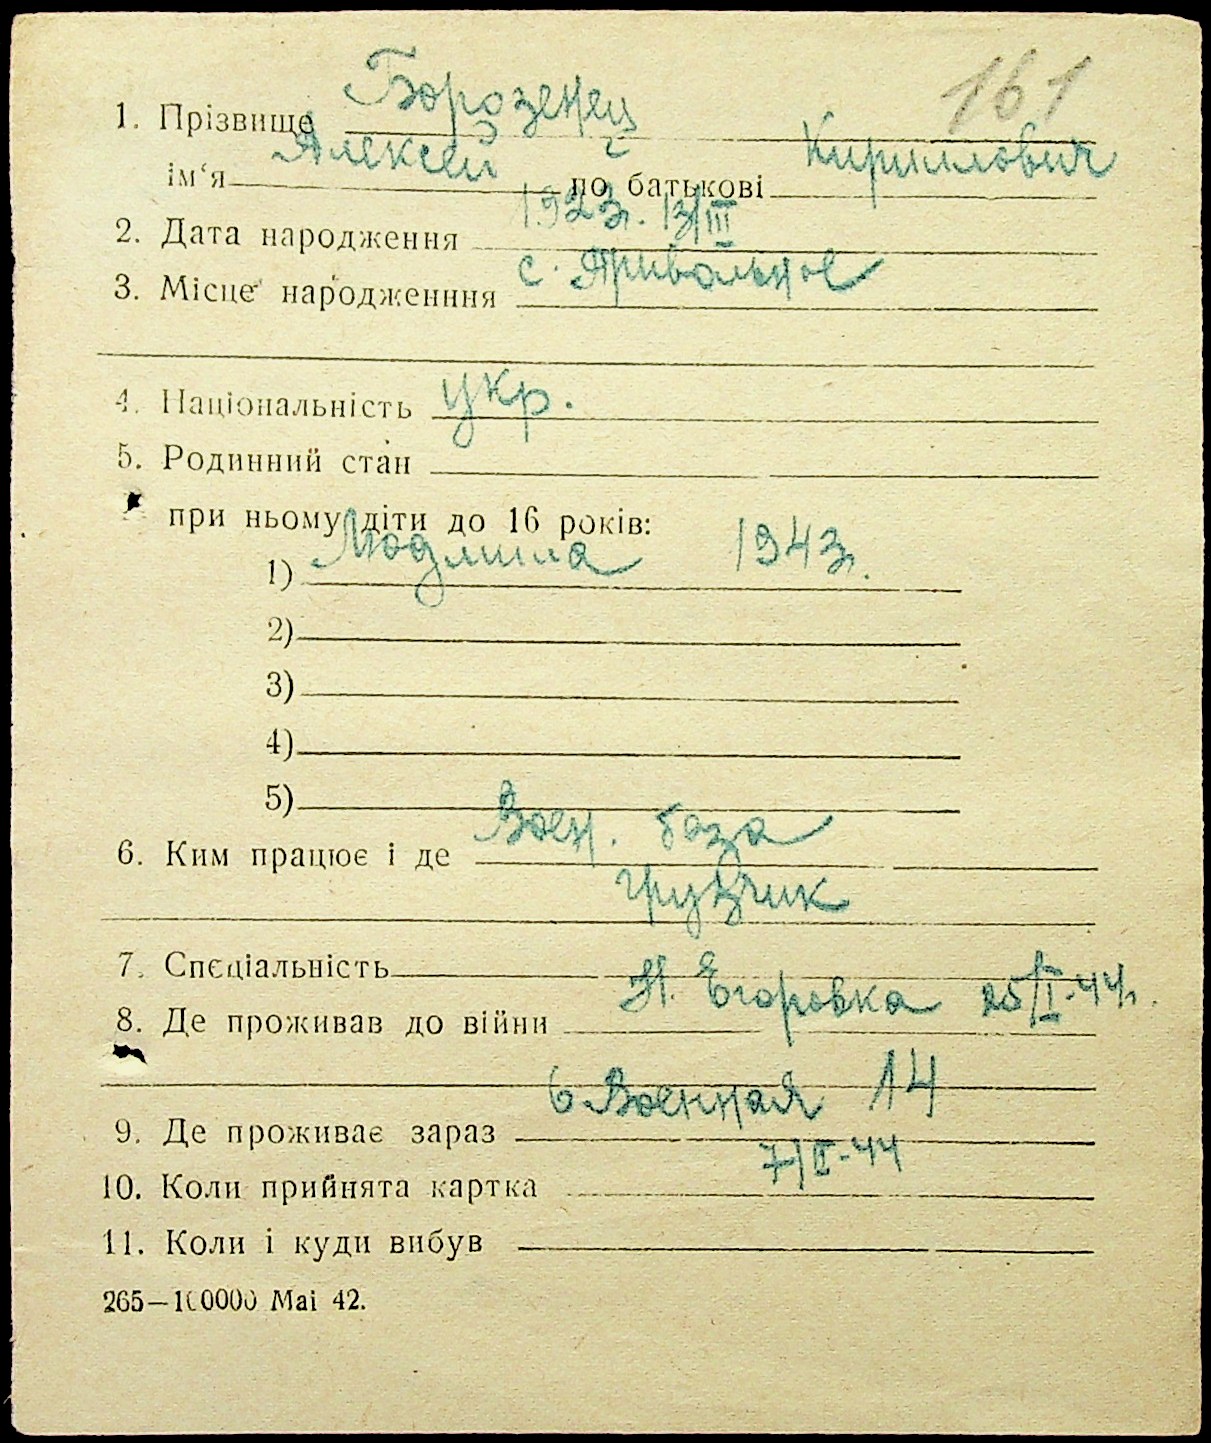 161
1. Прізвище Борозенец
ім‘я Алексей по батькові Кириллович
2. Дата народження 1923г. 13/III
3. Місце народженння с. Привольное
4. Національність укр.
5. Родинний стан
при ньому діти до 16 років:
1) Людмила 1943г.
2)
3)
4)
5)
6. Ким працює і де Воен. база
грузчик
7. Спеціальність
8. Де проживав до війни Н. Егоровка 25/I-44г.
9. Де проживає зараз 6 Военная 14
10. Коли прийнята картка 7/II-44
11. Коли і куди вибув
265—100000 Mai 42.